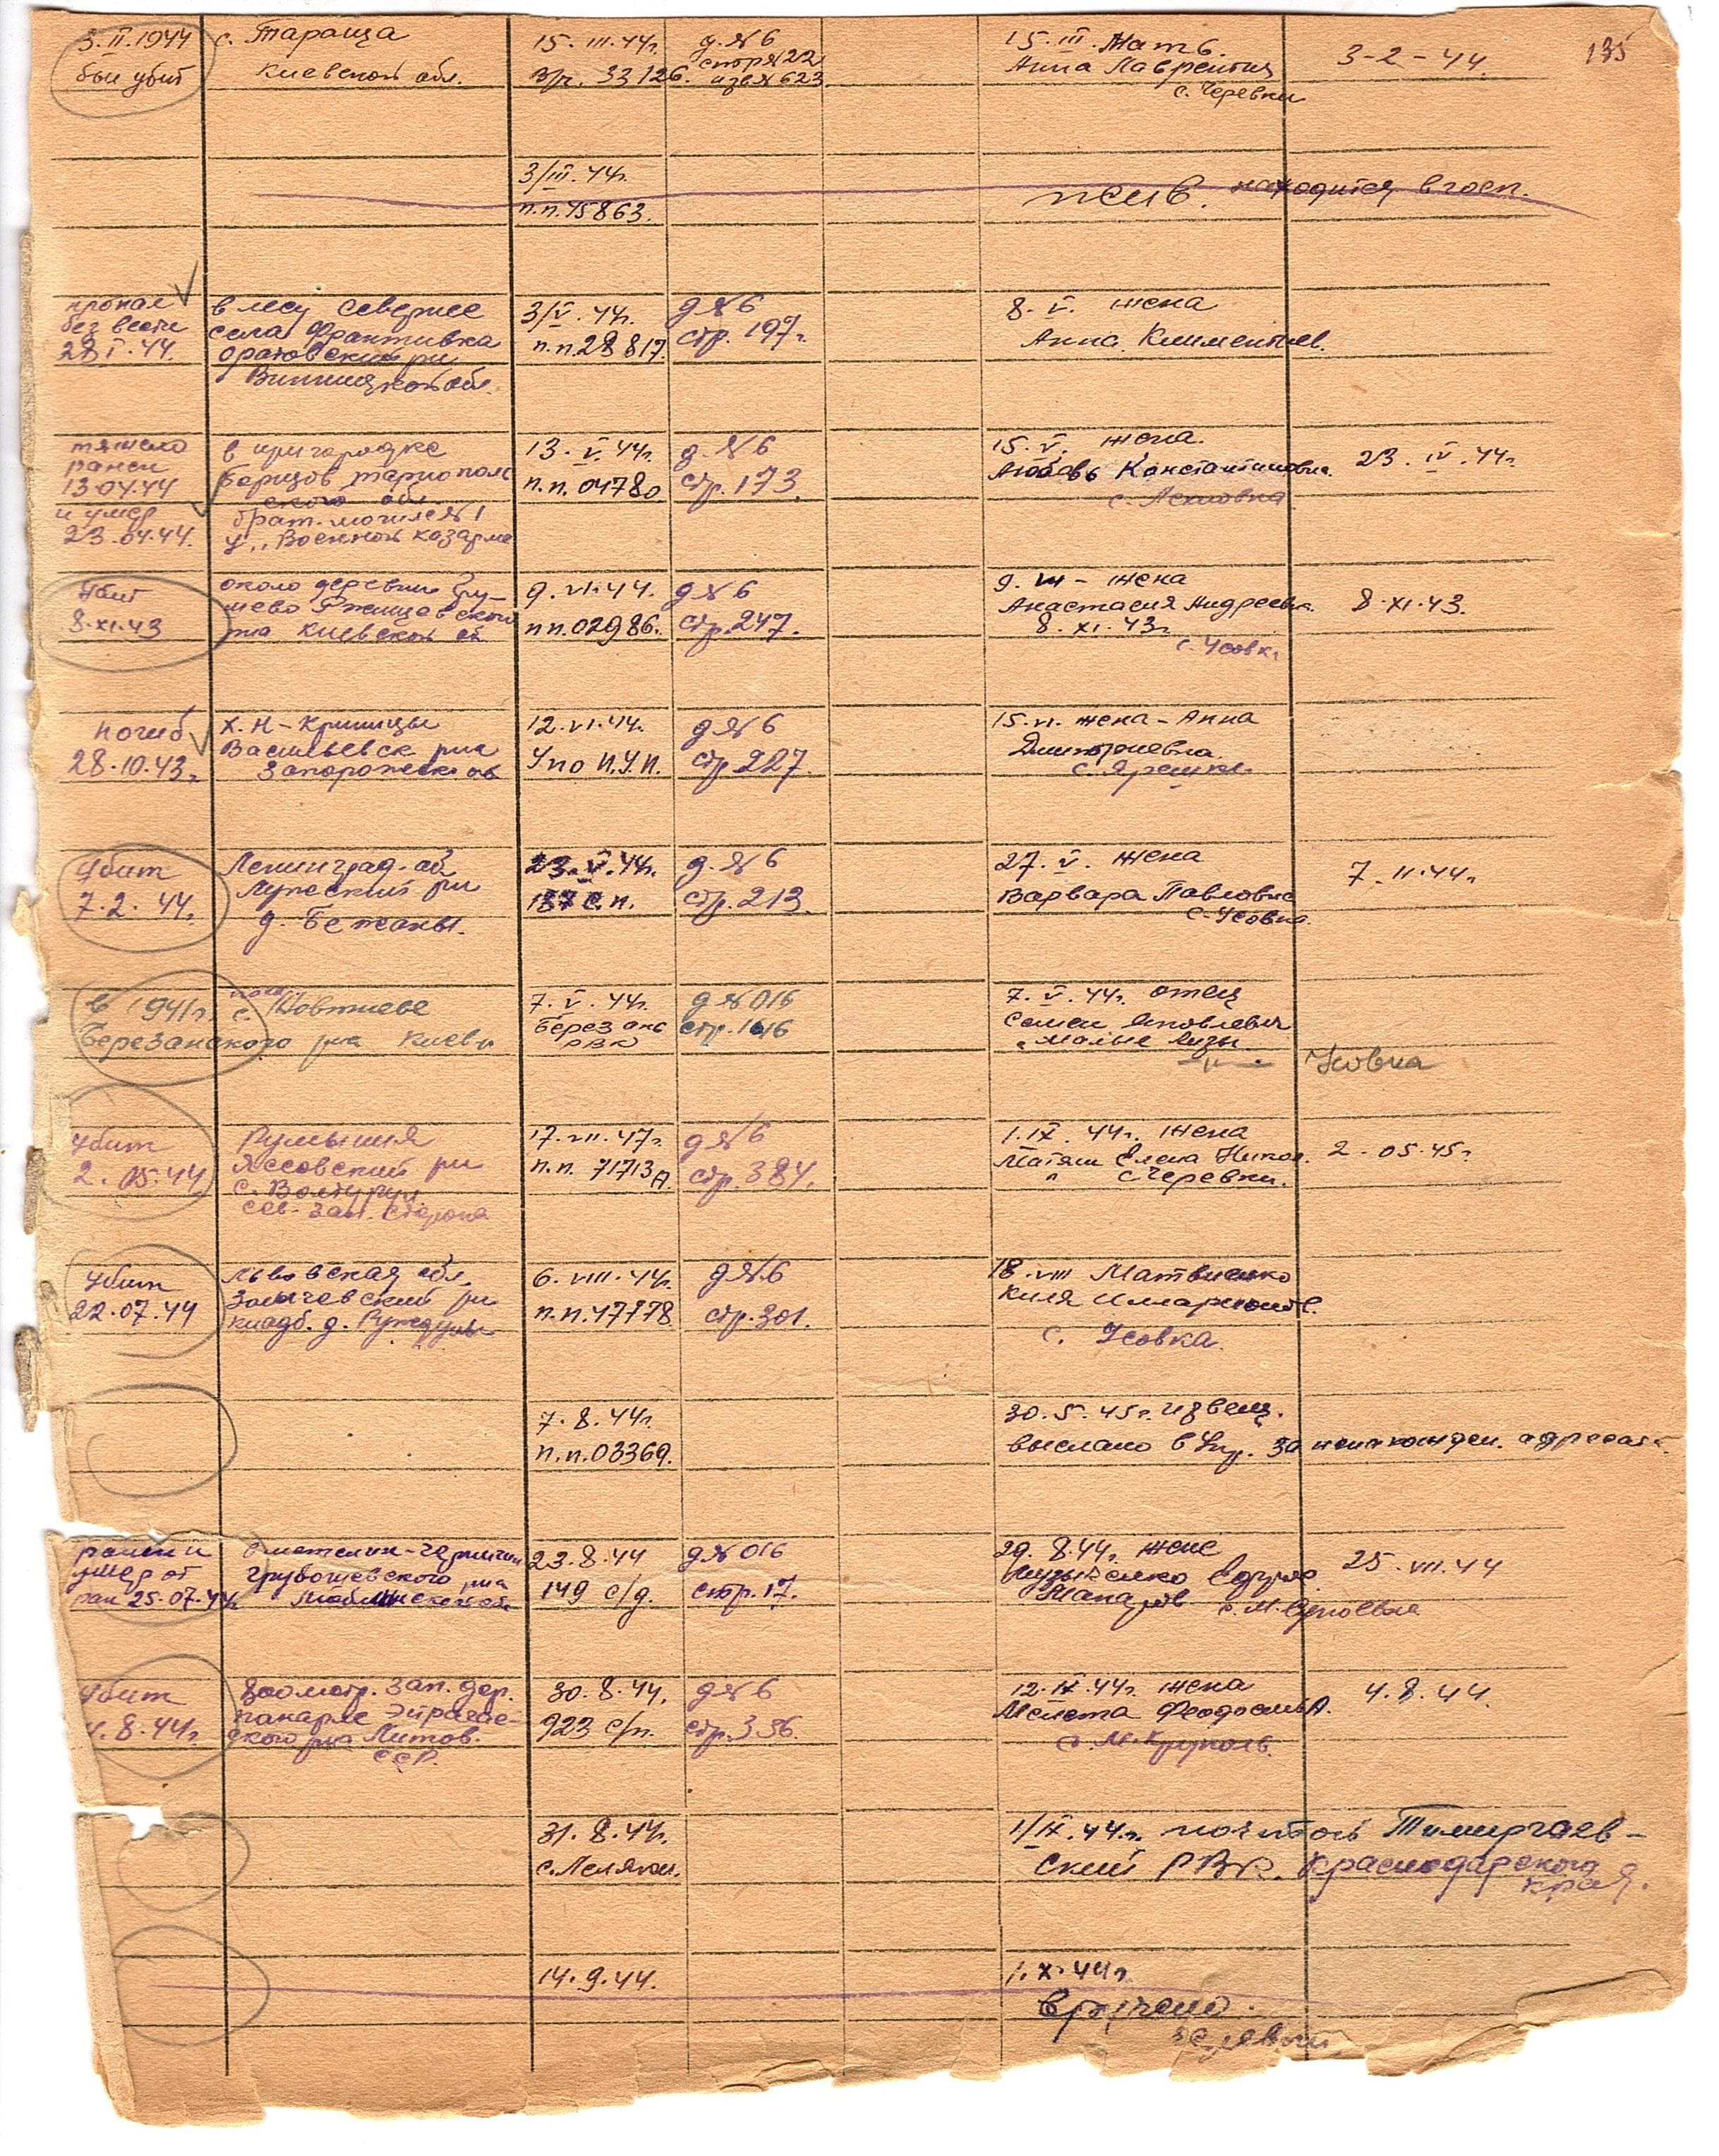 135
3.II.1944
был убит
с. Тараща
Киевской обл.
15.III.44г.
33126.
д.№6
стр№22
извя№623
15.III. Мать.
Анна Лаврентия
с. Черевки
3-2-44.
3/III.44г.
п.п.45863.
жив. находится в госп.
пропал
без вести
28.I.44.
в лесу севернее
села Франтивка
Оратовский р-н
Винницкой обл.
3/V.44г.
п.п.28817
д№6
стр.197г.
8.V. жена
Анна Климентьев.
тяжело
ранен
13.04.44
и умер
23.04.44.
в пригородке
Борщов тарнополь
ского обл.
брат. могиле №1
у „Военной козарме
13.V.44г.
п.п.04780
д.№6
стр.173.
15.V. жена.
Любовь Константиновна.
23.IV.44г.
убит
8.XI.43
около деревни Гру-
шево Ржищевского
р-на Киевской об
9.VI.44.
пп.02986.
д№6
стр.247.
9.VII - жена
Анастасия Андреевн.
8.XI.43г
с. Усовка
8.XI.43.
погиб
28.10.43г.
Х. Н-Криницы
Васильевск р-на
Запорожск. об
12.VI.44.
Упо Н.У.П.
д№6
стр.227.
15.VI. жена-Анна
Дмитриевна.
с. Ярешки.
убит
7.2.44г.
Ленинград. об
Лужский р-н
д. Бежаны.
23.V.44г.
187 с.п.
д.№6
стр.213.
27.V. жена
Варвара Павловна
с. Усовка.
7.II.44г
в 1941г. с. Повтиеве
Березанского р-на Киевск
7.V.44г.
Березанс
РВК
д№016
стр.1616
7.V.44г. отец
Семен Яковлевич
Усовка
убит
2.05.44
Румыния
Яссовский р-н
с. Волтурул.
сев-зап. сторона
17.VII.47г
п.п. 71713А.
д№6
стр.384.
1.IX.44г. жена
Матяш Елена Никол.
с Черевки.
2.05.45г
убит
22.07.44
Львовская обл.
Золочевский р-н
кладб. д. Руждулы
6.VIII.44г.
п.п.47778
д№6
стр.301.
18.VIII Матвиенко
Киля Илларионов.
с. Усовка.
7.8.44г.
п.п.03369.
30.5.45г. извещ.
выслано в Упр. за ненахожден. адресата.
ранен и
умер от
ран 25.07.44г.
Грубошевского р-на
Люблинской об
23.8.44
149 с/д.
д№016
стр.17.
29.8.44г. жене
25.VII.44
убит
4.8.44г.
300метр. зап. дер.
скога р-на Литов.
ССР.
30.8.44.
923 с/п.
д№6
стр.356.
12.IX.44г. жена
с М. Круполь.
4.8.44.
31.8.44г.
с. Лелякы.
1/IX.44г. почтой Темиргоев-
ский РВК. Краснодарского
края.
14.9.44.
1.X.44г
вручено.